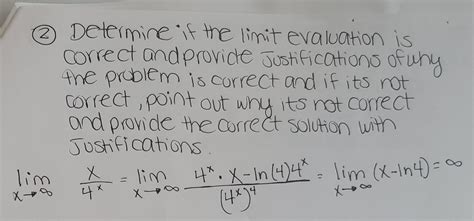 ② Determine if the limit evaluation is
correct and provide Justifications of why
the problem is correct and if its not
correct, point out why its not correct
and provide the correct solution with
Justifications.
lim x→∞ x/4^x = lim x→∞ (4^x · x - ln(4)4^x)/(4^x)^4 = lim x→∞ (x - ln4) = ∞